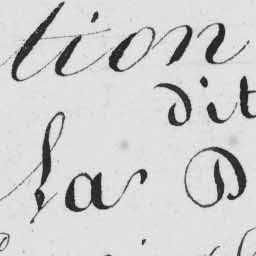 tion
dit
La D